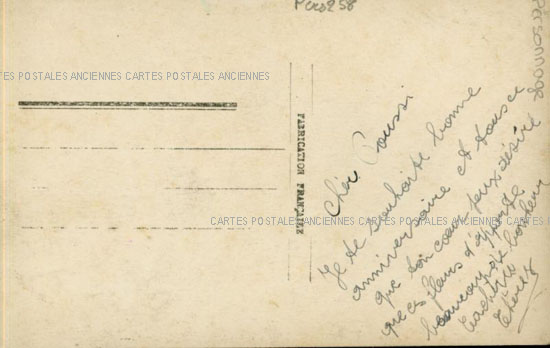 Pers258
Personnage
CARTES POSTALES ANCIENNES CARTES POSTALES ANCIENNES
FABRICATION FRANÇAISE
Cher Poussi
Je te souhaite bonne
anniversaire et tous ce
que ton cœur peux désiré
que ces fleurs t'apporte
beaucoup de bonheur
CARTES POSTALES ANCIENNES CARTES POSTALES ANCIENNES